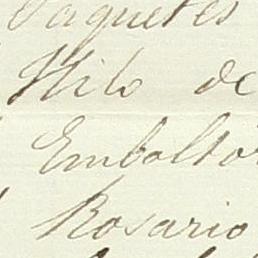 Paquetes
Hilo de
Emboltor
Rosario